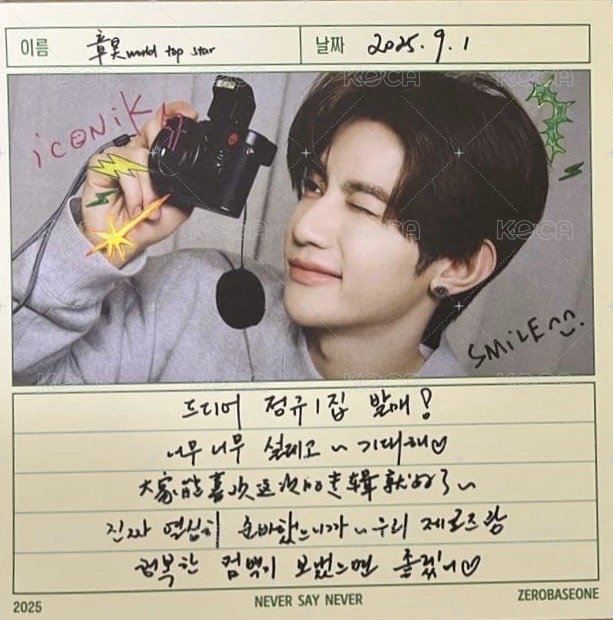 이름 章昊 world top star
날짜 2025.9.1
KOCA
iCONiK
SMiLE^^.
드디어 정규 1집 발매!
너무 너무 설레고~ 기대해♡
大家能喜欢这次的专辑就好了~
진짜 열심히 준비했으니까~ 우리 제로즈랑
행복한 컴백이 되었으면 좋겠어♡
2025
NEVER SAY NEVER
ZEROBASEONE